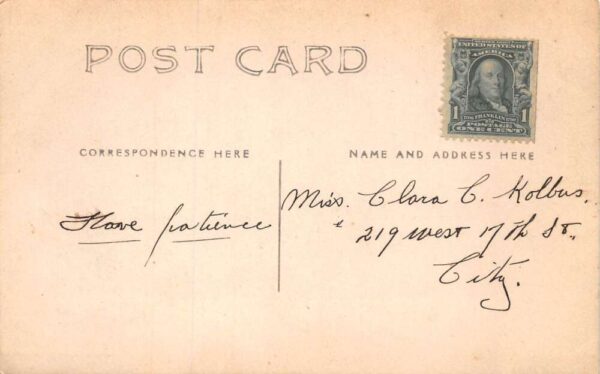 POST CARD
UNITED STATES OF AMERICA
1 FRANKLIN 1
POSTAGE
ONE CENT
CORRESPONDENCE HERE
NAME AND ADDRESS HERE
Have patience
Miss. Clara C. Kolbus.
219 West 17th St.,
City.